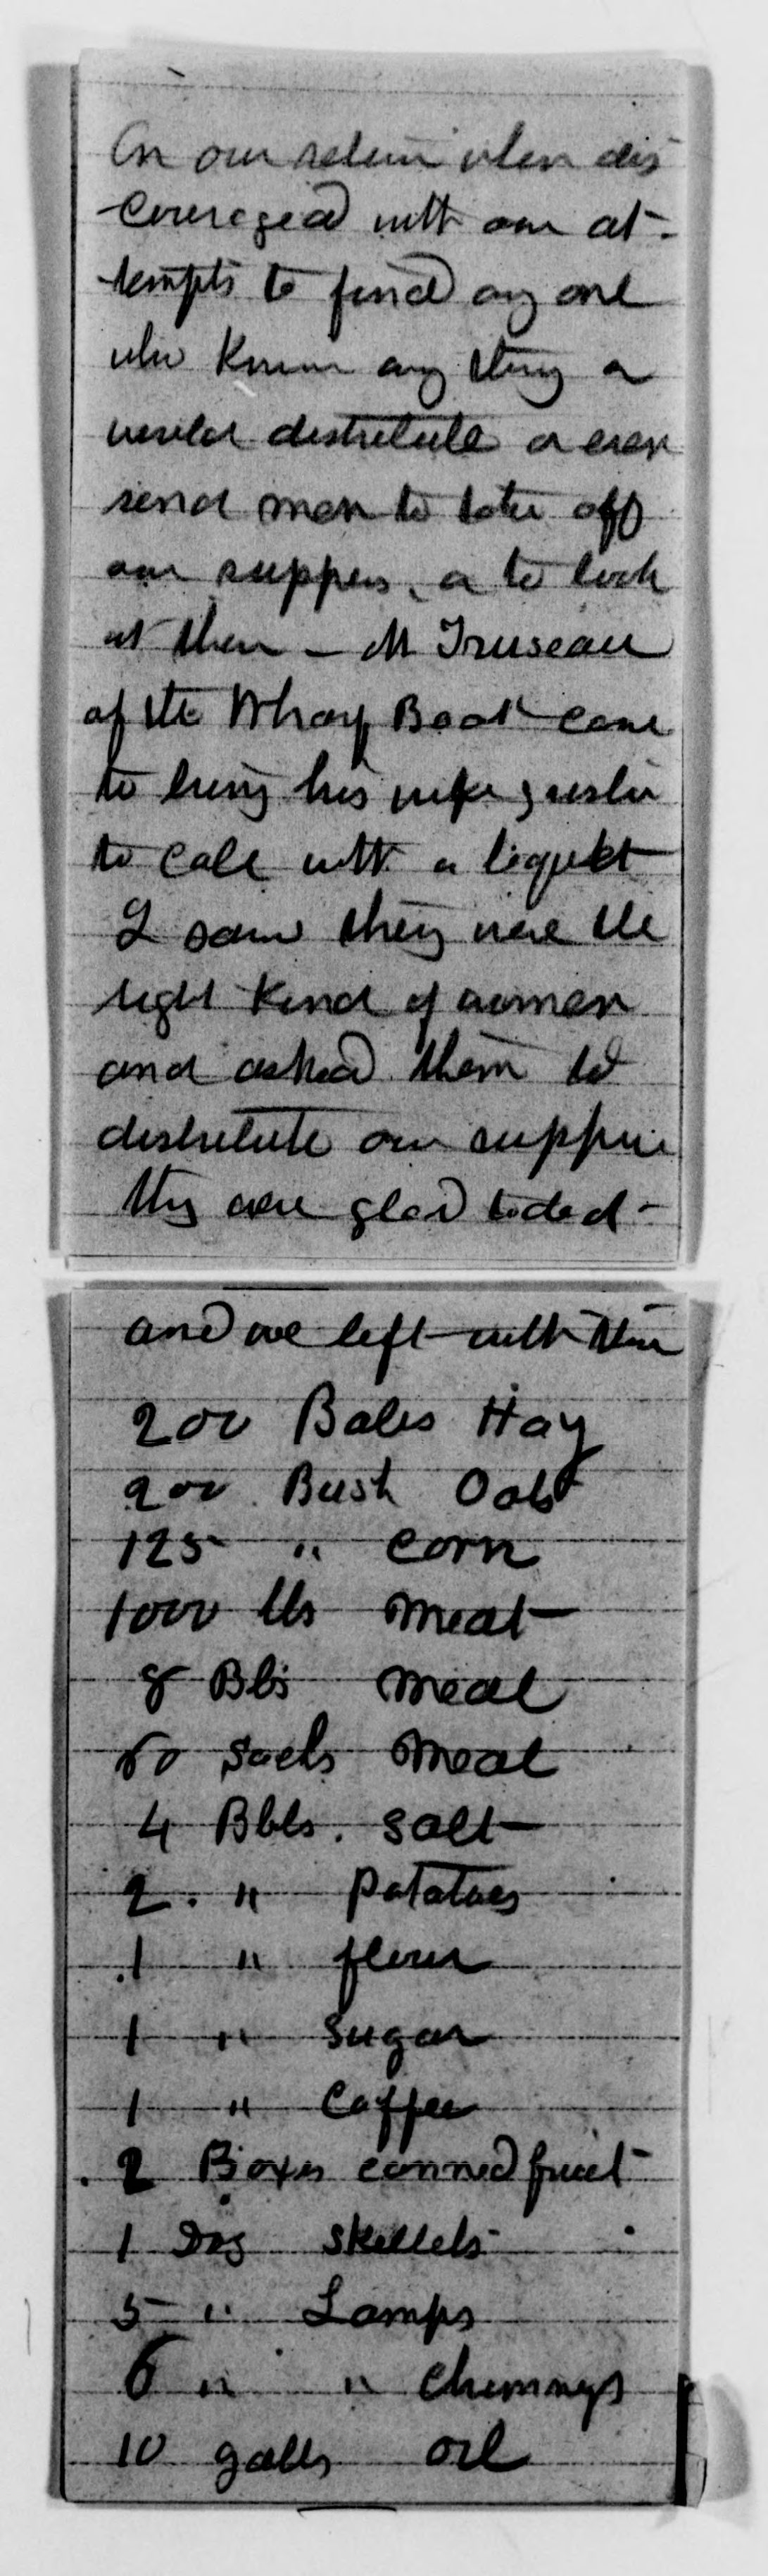 On our return when dis
couraged with our at-
tempts to find any one
who knew any thing or
would distribute or even
send men to take off
our supplies, or to look
at them – Mr Truseau
of the Wharf Boat came
to bring his wife & sister
to call with a boquet
I saw they were the
right kind of women
and asked them to
distribute our supplies
they were glad to do it –
and we left with them
200 Bales Hay
200 Bush Oats
125 " Corn
1000 lbs Meat
8 Bbls Meal
50 Sacks Meal
4 Bbls. Salt
2. " Potatoes
1 " flour
1 " Sugar
1 " Coffee
2 Boxes canned fruit
1 Doz Skillets
5 " Lamps
6 " " Chimneys
10 galls oil